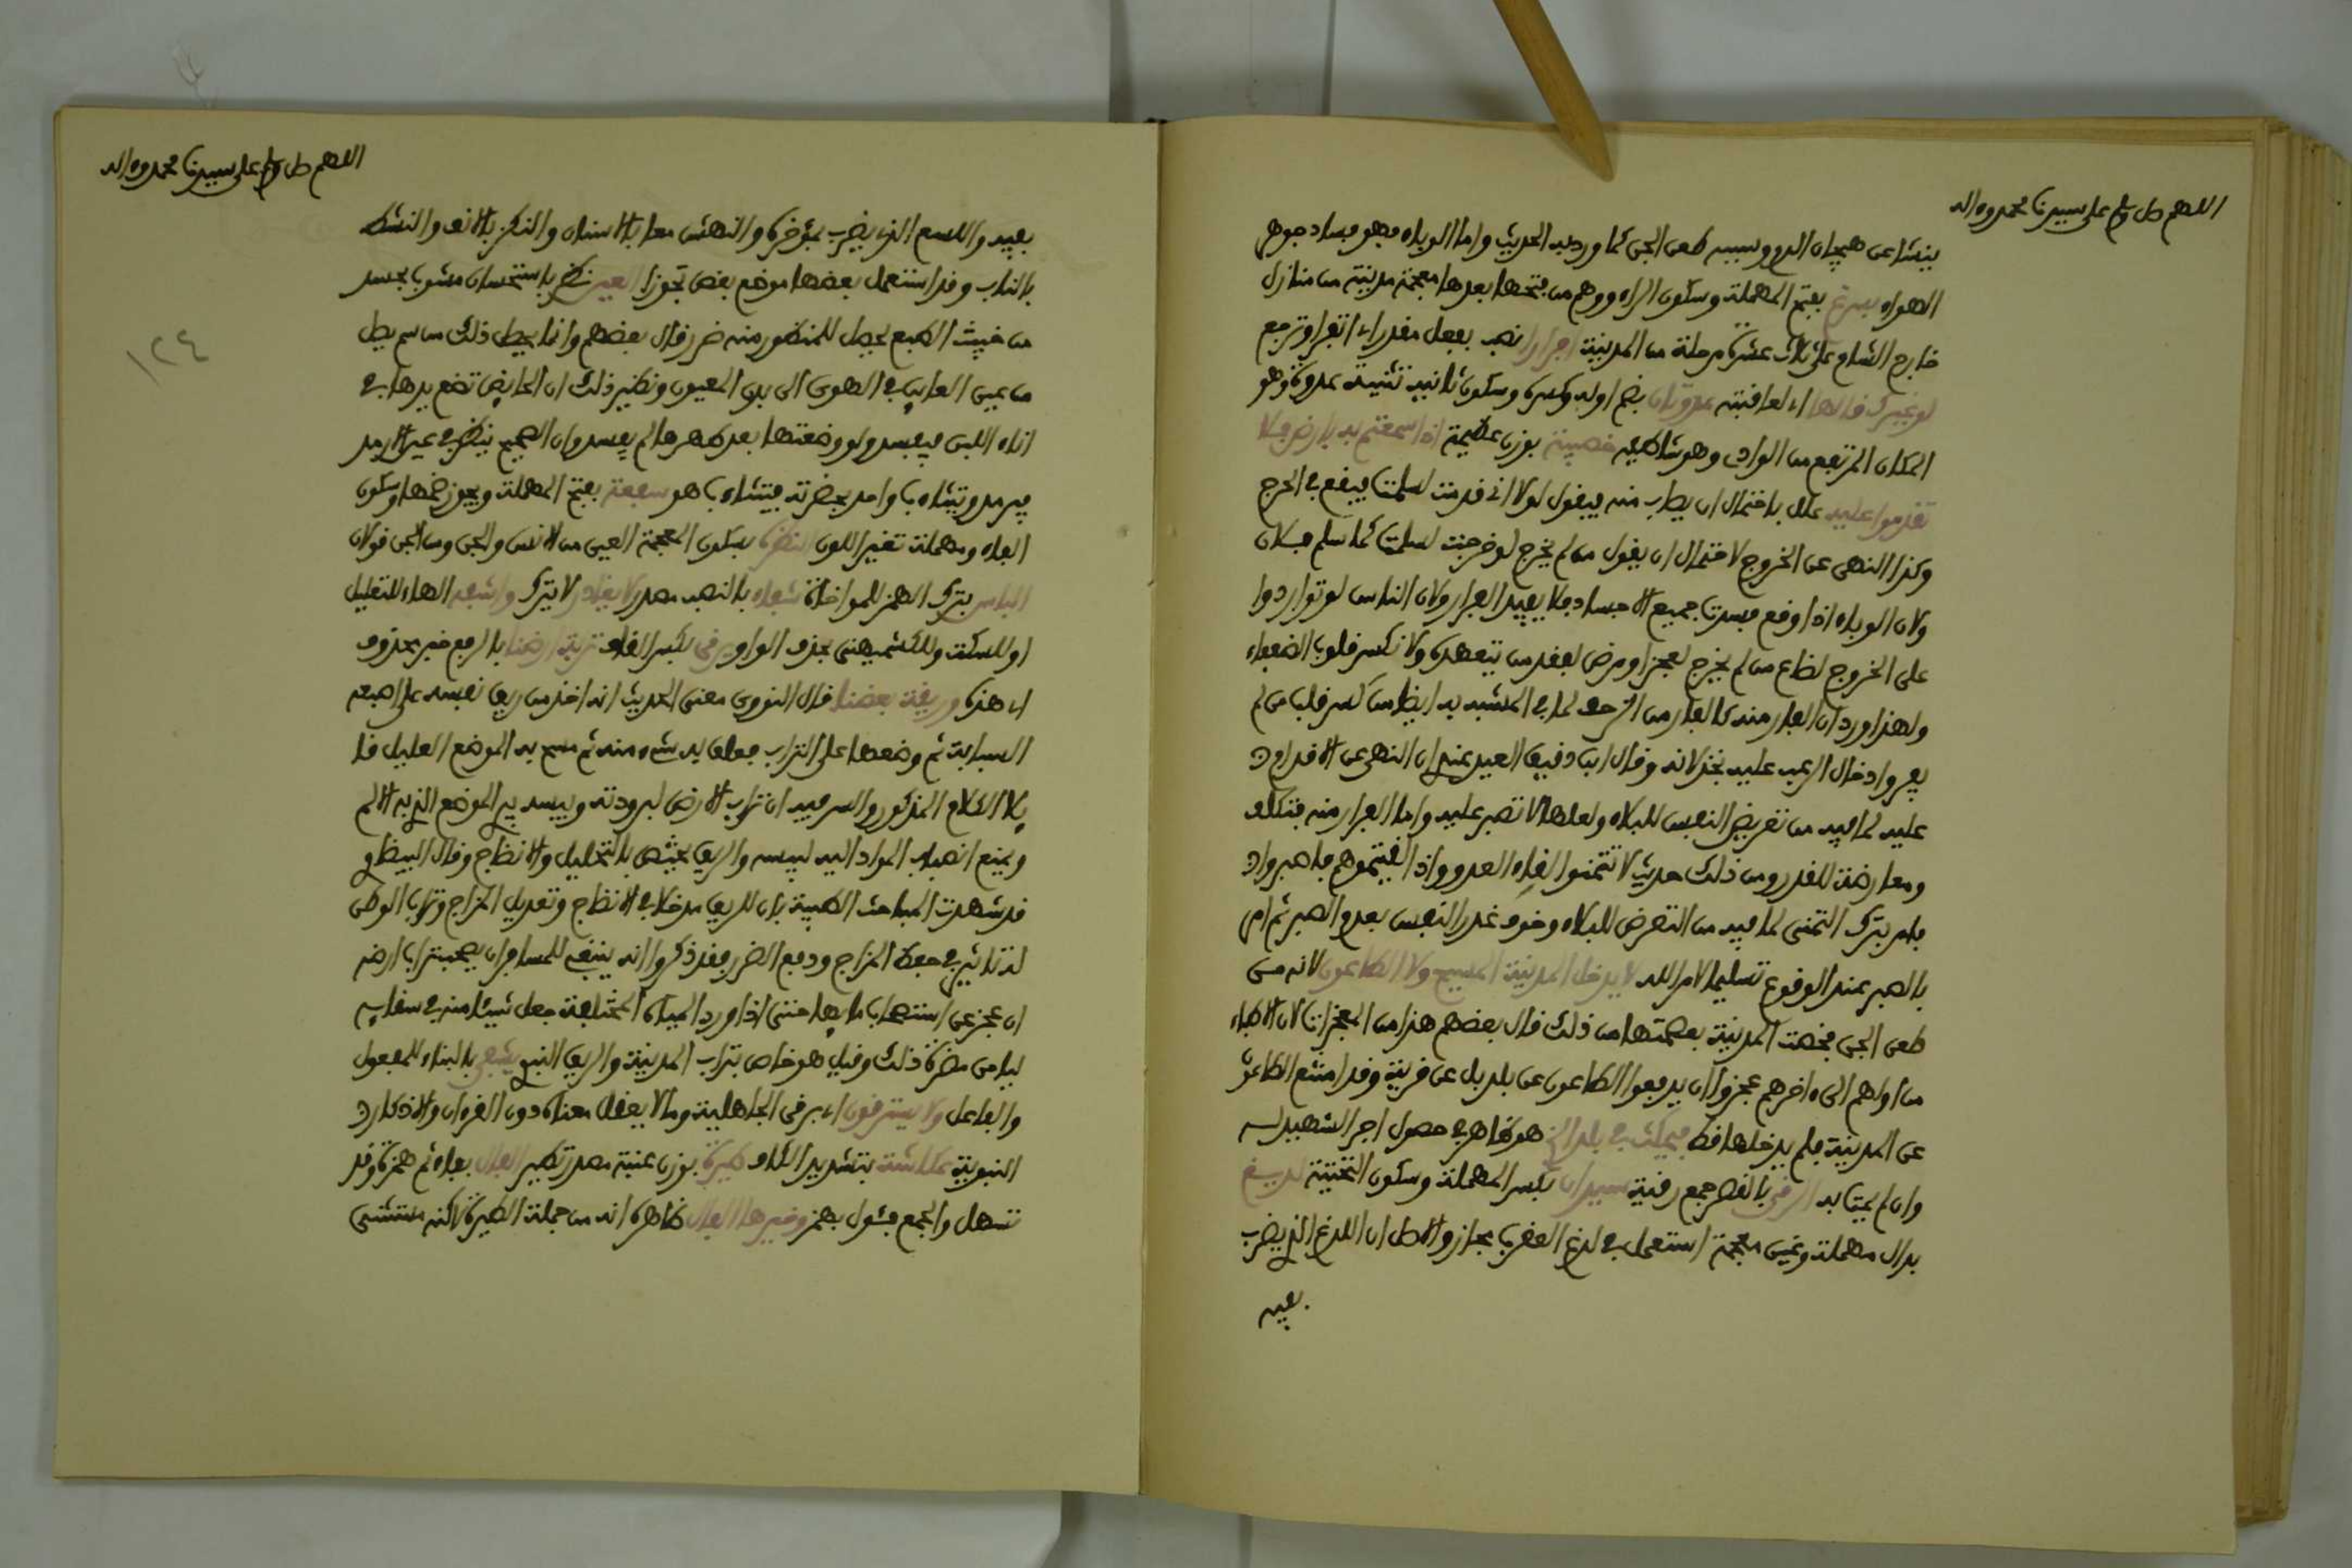 اللهم صل وسلم على سيدنا محمد وءاله
ينشا عن هيجان الدم وسببه طعن الجن كما ورد به الحديث واما الوباء فهو فساد جوهر
الهواء بسرغ بفتح المهملة وسكون الراء ووهم من فتحها بعدها معجمة مدينة من منازل
خارج الشام على ثلاث عشرة مرحلة من المدينة افرارا نصب بفعل مقدر اي اتفر او ترجع
لو غيرك قالها اي لعاقبته عدوتان بضم اوله وكسره وسكون ثانيه تثنية عدوة وهو
المكان المرتفع من الوادي وهو شاطئه خصيبة بوزن عظيمة اذا سمعتم به بارض فلا
تقدموا عليه علل باحتمال ان يصاب منه فيقول لولا اني قدمت لسلمت فيقع في الحرج
وكذا النهي عن الخروج لاحتمال ان يقول من لم يخرج لو خرجت لسلمت كما سلم فلان
ولان الوباء اذا وقع فسدت جميع الاجساد فلا يفيد الفرار ولان الناس لو تواردوا
على الخروج لضاع من لم يخرج لعجز او مرض لفقد من يتعهده ولانكسر قلوب الضعفاء
ولهذا ورد ان الفار منه كالفار من الزحف لما في المشبه به ايضا من كسر قلب من لم
يفر وادخال الرعب عليه بخذلانه وقال ابن دقيق العيد عندي ان النهي عن الاقدام
عليه لما فيه من تعريض النفس للبلاء ولعلها لا تصبر عليه واما الفرار منه فتكلف
ومعارضة للقدر ومن ذلك حديث لا تتمنوا لقاء العدو واذا لقيتموهم فاصبروا
فامر بترك التمني لما فيه من التعرض للبلاء وخوف غدر النفس بعدم الصبر ثم امر
بالصبر عند الوقوع تسليما لامر الله لا يدخل المدينة المسيح ولا الطاعون لانه من
طعن الجن فخصت المدينة بعصمتها من ذلك قال بعضهم هذا من المعجزات لان الاطباء
من اولهم الى ءاخرهم عجزوا ان يدفعوا الطاعون عن بلد بل عن قرية وقد امتنع الطاعون
عن المدينة فلم يدخلها قط فيمكث في بلد الخ هو ظاهر في حصول اجر الشهيد له
وان لم يمت به الرقى بالقصر جمع رقية سيدان بكسر المهملة وسكون التحتية لديغ
بدال مهملة وغين معجمة استعمل في لدغ العقرب مجاز والاصل ان اللدغ الذي يضرب
بفيه
اللهم صل وسلم على سيدنا محمد وءاله
١٢٤
بفيه واللسع الذي يضرب بمؤخره والنهش معا بالاسنان والنكز بالانف والنشط
بالناب وقد استعمل بعضها موضع بعض تجوزا العين نظر باستحسان مشوب بحسد
من خبيث الطبع يحصل للمنظور منه ضرر قال بعضهم وانما يحصل ذلك من سم يصل
من عين العاين في الهوى الى بدن المعيون ونظير ذلك ان الحايض تضع يدها في
اناء اللبن فيفسد ولو وضعتها بعد طهرها لم يفسد وان الصحيح ينظر في عين الارمد
فيرمد ويتثاءب واحد بحضرته فيتثاءب هو سفعة بفتح المهملة ويجوز ضمها وسكون
الفاء ومهملة تغير اللون النظرة بسكون المعجمة العين من الانس والجن ومن الجن قولان
الباس بترك الهمز للمواخاة شفاء بالنصب مصدر لا يغادر لا يترك واشفه الهاء للتعليل
او للسكت وللكشميهني بحذف الواو يرقى بكسر القاف تربة ارضنا بالرفع خبر محذوف
اي هذه وريقة بعضنا قال النووي معنى الحديث انه اخذ من ريق نفسه على اصبعه
السبابة ثم وضعها على التراب فعلق به شيء منه ثم مسح به الموضع العليل قا
يلا الكلام المذكور والسر فيه ان تراب الارض لبرودته ويبسه يبرئ الموضع الذي به الالم
ويمنع انصباب المواد اليه ليبسه والريق يختص بالتحليل والانضاج وقال البيضاوي
قد شهدت المباحث الطبية بان للريق مدخلا في الانضاج وتعديل المزاج وتراب الوطن
له تاثير في حفظ المزاج ودفع الضرر فقد ذكروا انه ينبغي للمسافر ان يصحب تراب ارضه
ان عجز عن استصحاب مايها حتى اذا ورد المياه المختلفة جعل شيئا منه في سقايه
ليامن مضرة ذلك وقيل هو خاص بتراب المدينة والريق النبوي يشفى بالبناء للمفعول
والفاعل ولا يسترقون اي برقى الجاهلية وما لا يعقل معناه دون القرءان والاذكار
النبوية عكاشة بتشديد الكاف طيرة بوزن عنبة مصدر تطير الفال بفاء ثم همزة وقد
تسهل والجمع فئول بهمز وخيرها الفال ظاهره انه من جملة الطيرة لاكنه مستثنى